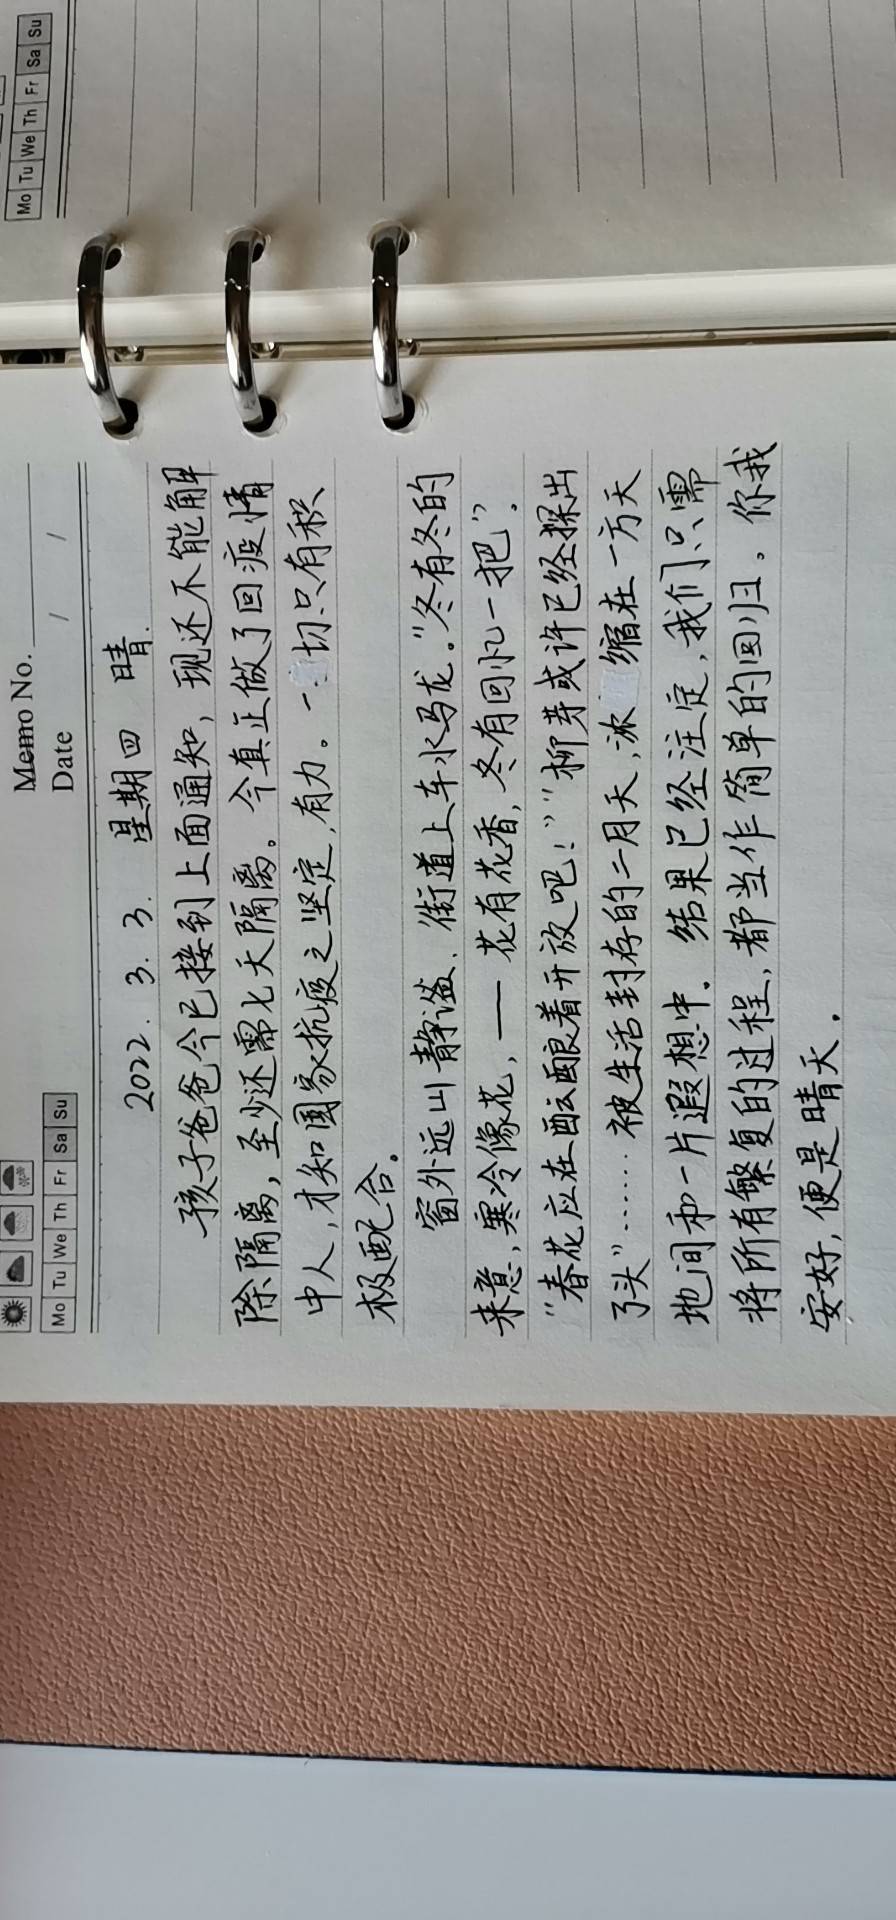 Memo No.
Mo Tu We Th Fr Sa Su
Date / /
2022. 3. 3. 星期四 晴.
孩子爸爸今已接到上面通知，现还不能解
除隔离，至少还需七天隔离。今真正做了回疫情
中人，才知国家抗疫之坚定，有力。一切只有积
极配合。
窗外远山静谧、街道上车水马龙。“冬有冬的
来意，寒冷像花，——花有花香，冬有回忆一把”。
“春花应在酝酿着开放吧！”“柳芽或许已经探出
了头”……被生活封存的二月天，浓缩在一方天
地间和一片遐想中。结果已经注定，我们只需
将所有繁复的过程，都当作简单的回归。你我
安好，便是晴天。
Mo Tu We Th Fr Sa Su